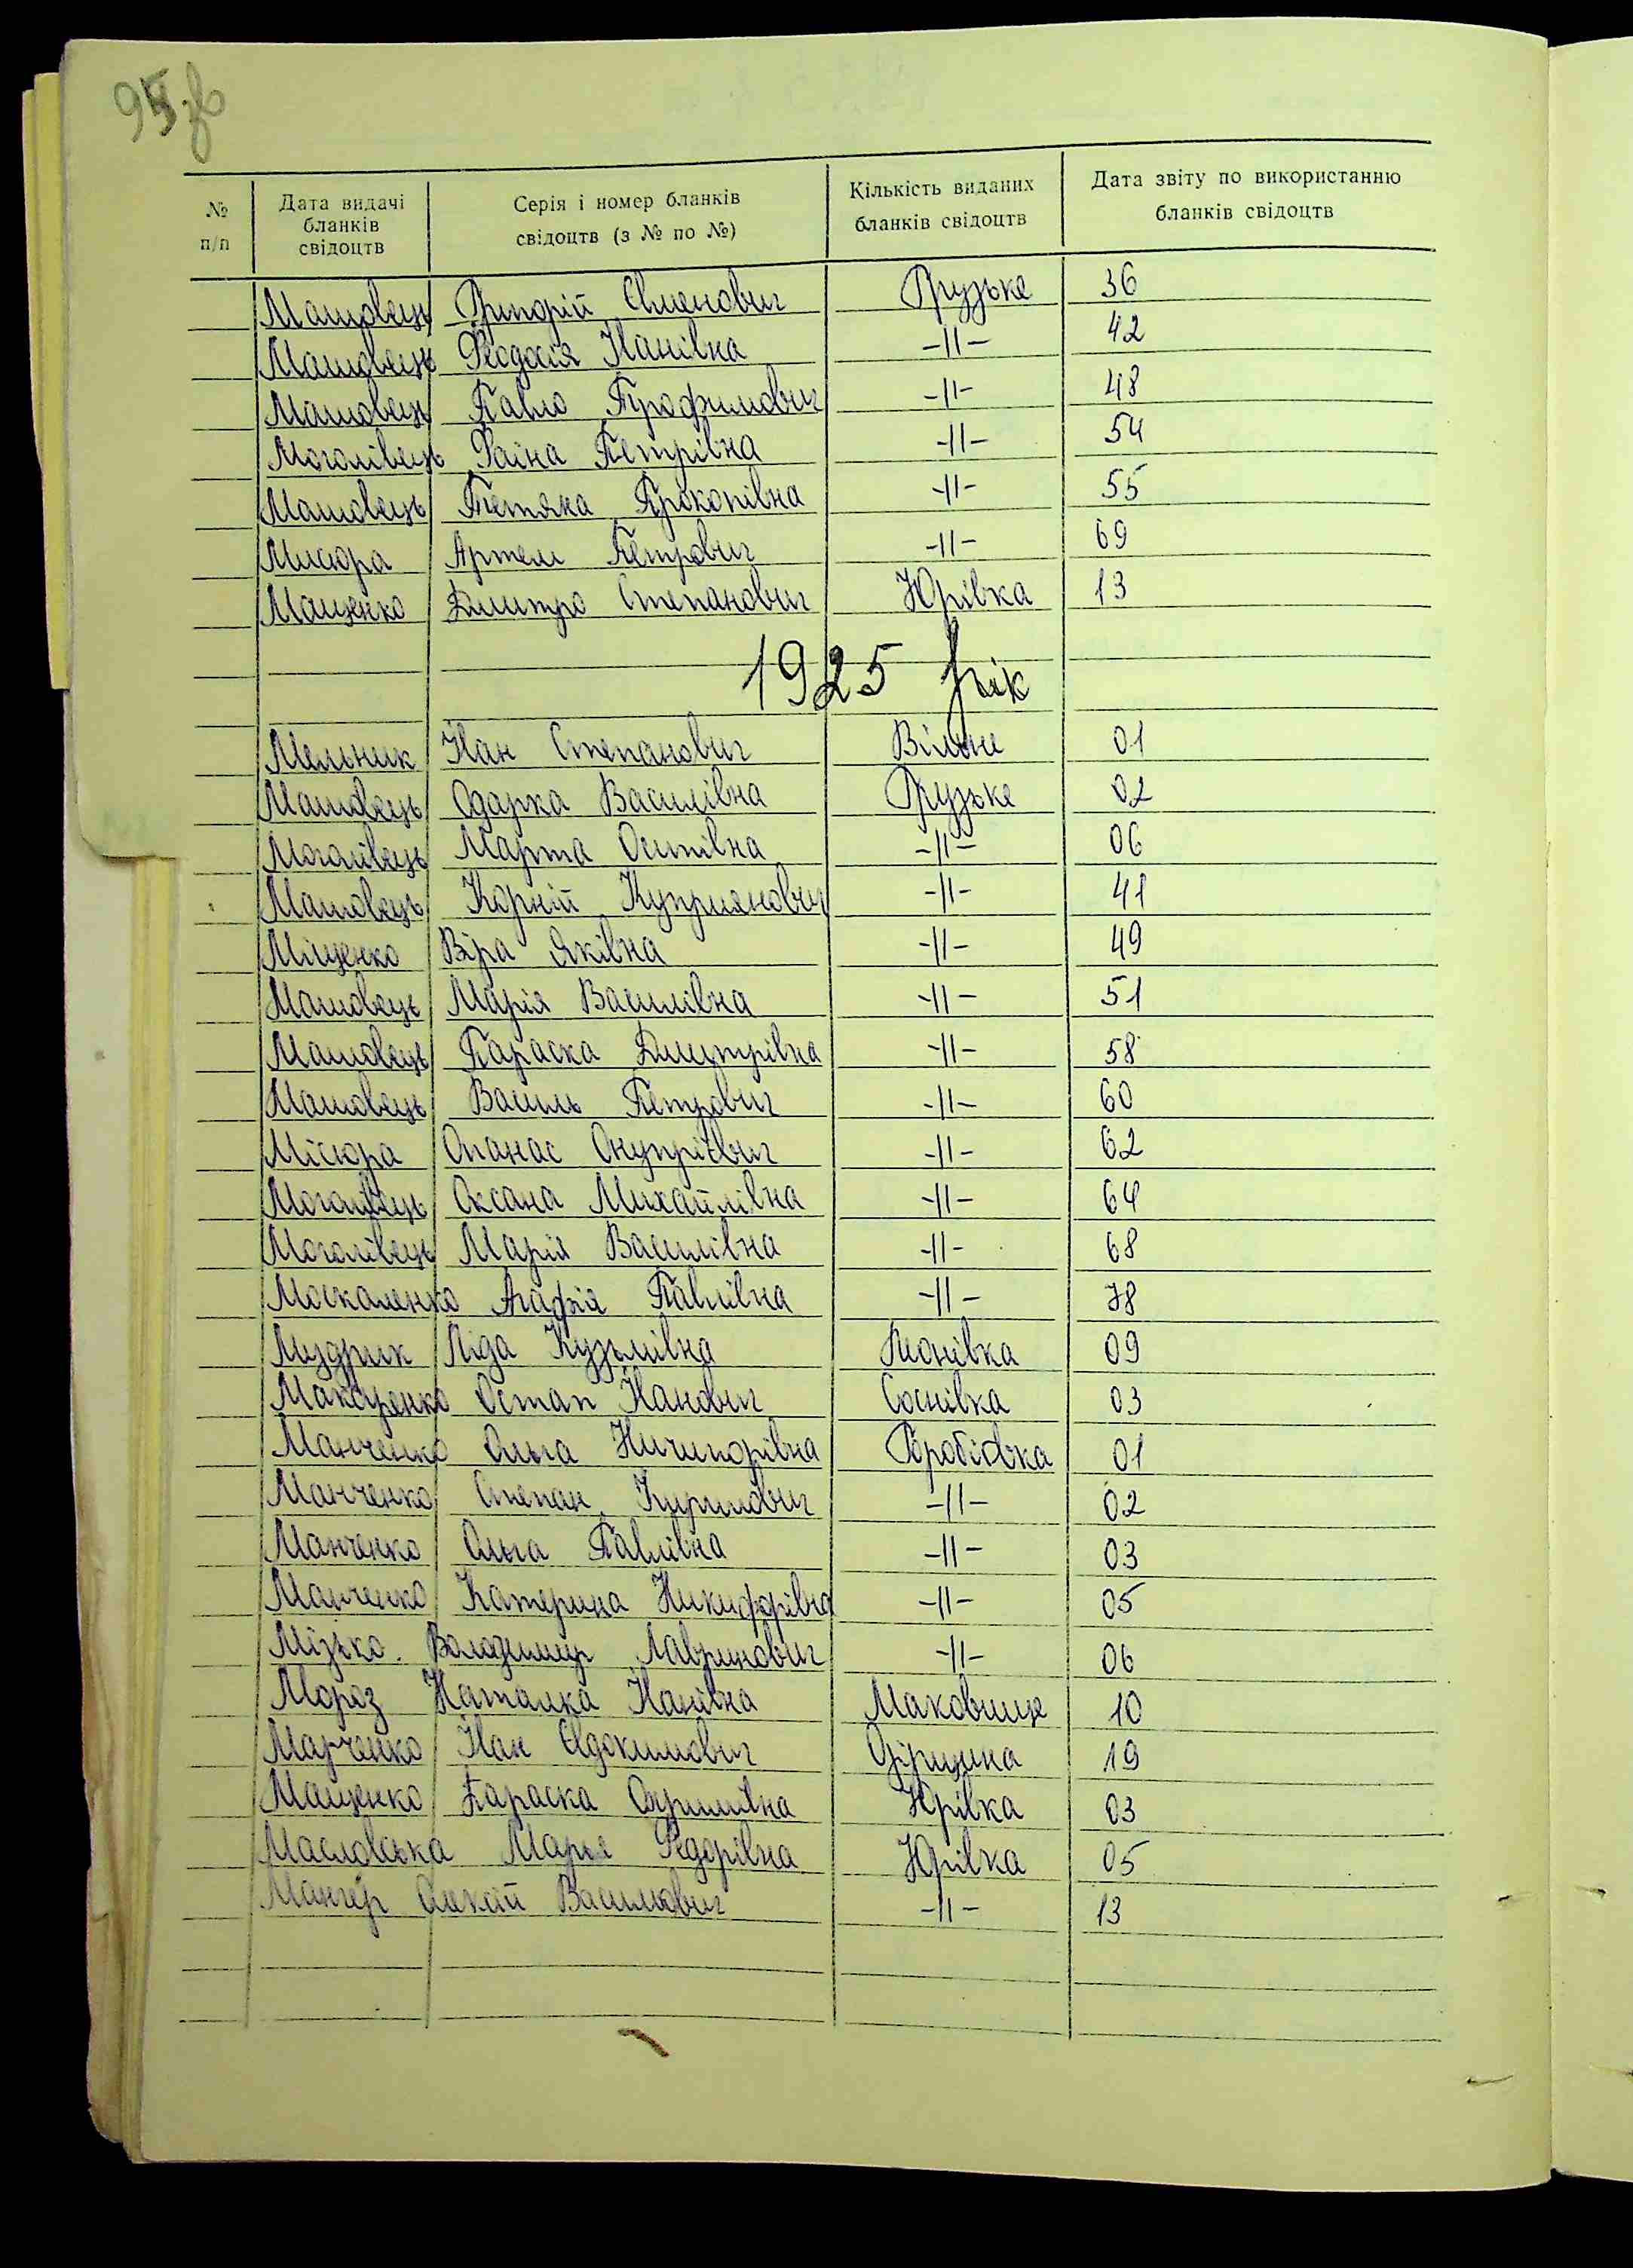 95 зв
№ п/п Дата видачі бланків свідоцтв Серія і номер бланків свідоцтв (з № по №) Кількість виданих бланків свідоцтв Дата звіту по використанню бланків свідоцтв
Машовець Григорій Євменович Грузьке 36
Машовець Феодосія Іванівна -||- 42
Машовець Павло Трофимович -||- 48
Моголівець Раїна Петрівна -||- 54
Машовець Тетяна Прокопівна -||- 55
Мисюра Артем Петрович -||- 69
Мащенко Дмитро Степанович Юрівка 13
1925 рік
Мельник Іван Степанович Вільне 01
Машовець Одарка Василівна Грузьке 02
Моголівець Марта Осипівна -||- 06
Машовець Корній Купріянович -||- 41
Міщенко Віра Яківна -||- 49
Машовець Марія Василівна -||- 51
Машовець Параска Дмитрівна -||- 58
Машовець Василь Петрович -||- 60
Місюра Опанас Онуприєвич -||- 62
Моголівець Оксана Михайлівна -||- 64
Моголівець Марія Василівна -||- 68
Москаленко Агафія Павлівна -||- 78
Мудрик Ліда Кузьмівна 09
Макаренко Остап Іванович Соснівка 03
Манченко Ольга Ничипорівна 01
Манченко Степан Кирилович -||- 02
Манченко Ольга Павлівна -||- 03
Манченко Катерина Никифорівна -||- 05
Мізько Володимир Лавринович -||- 06
Мороз Наталка Іванівна Маковище 10
Марченко Іван Євдокимович 19
Мащенко Параска Юрівка 03
Масловська Марія Федорівна Юрівка 05
Василькович -||- 13